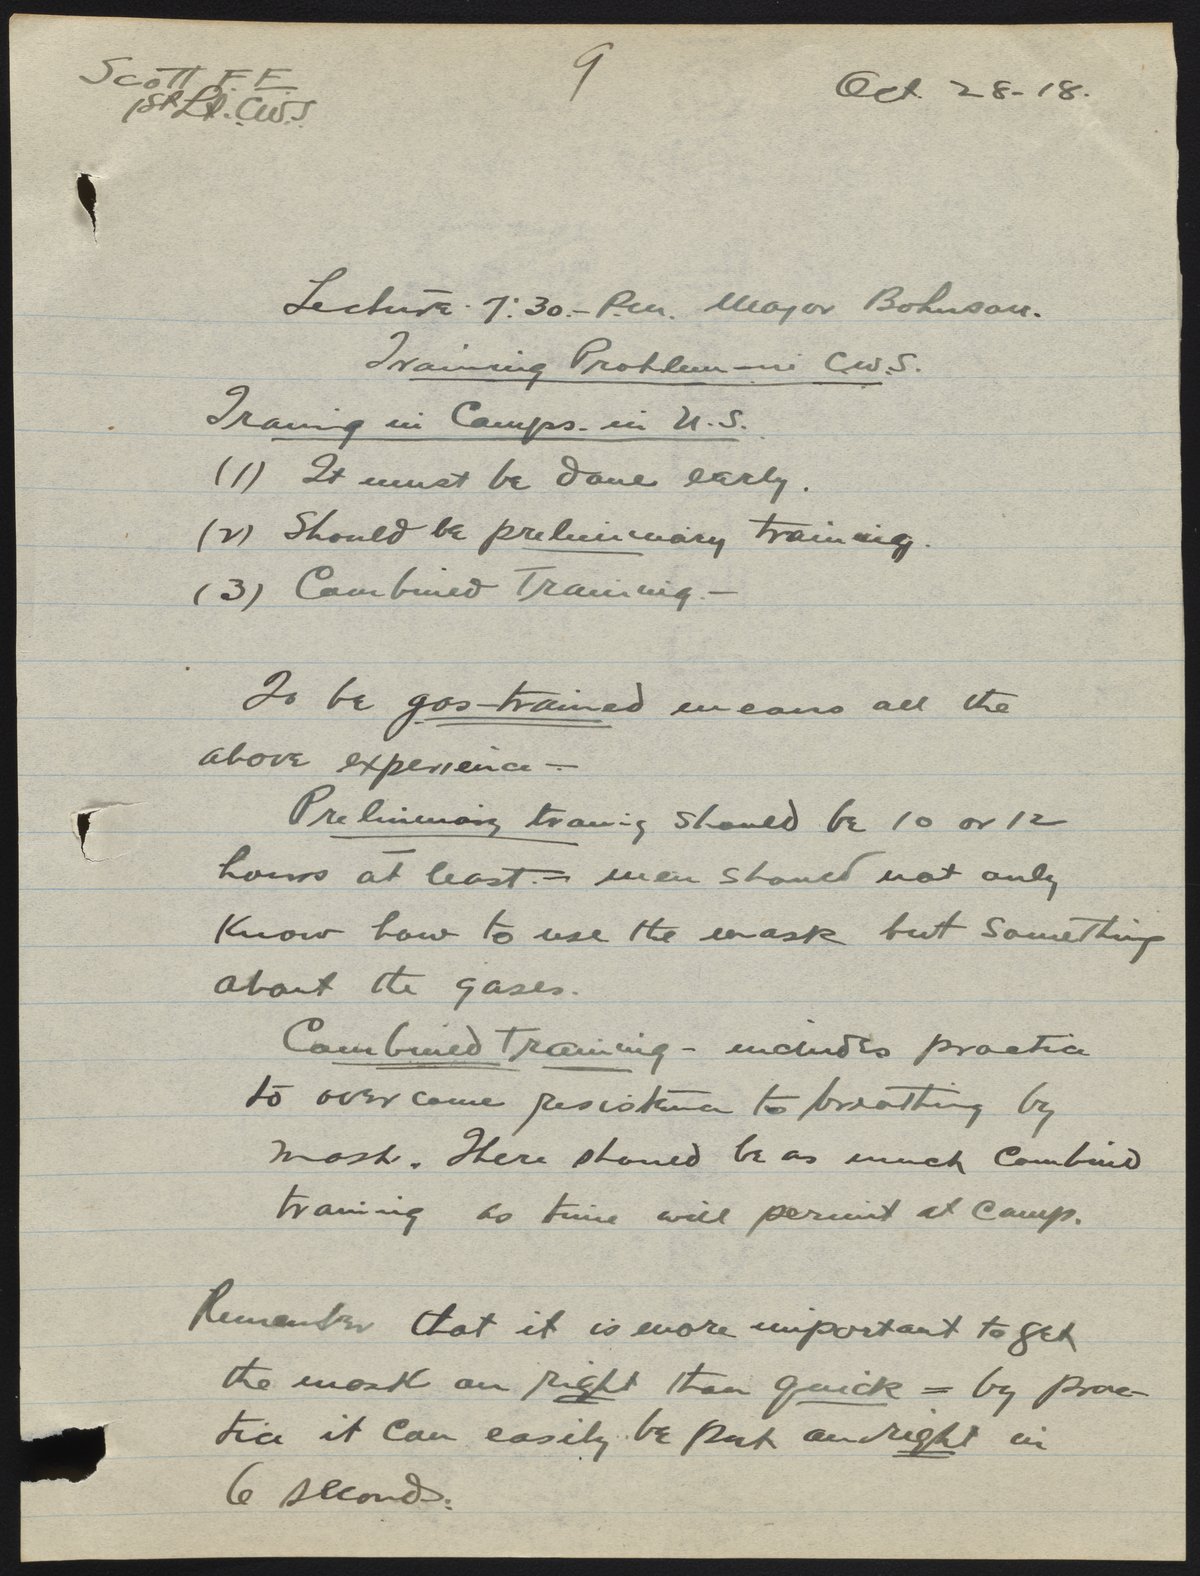 Scott F. E.
1st Lt. C.W.S.
9
Oct. 28-18.
Lecture 7:30.- P.m. Major Bohnson.
Training Problem in C.W.S.
Traning in Camps. in U.S.
(1) It must be done early.
(2) Should be preliminary training.
(3) Combined Training.-
To be gas-trained means all the
above experience-
Preliminary traning should be 10 or 12
hours at least.= men should not only
know how to use the mask but something
about the gases.
Combined Training - includes practice
to overcome resistance to breathing by
mask. There should be as much combined
training as time will permit at camp.
Remember that it is more important to get
the mask on right than quick = by prac-
tice it can easily be put on right in
6 seconds.